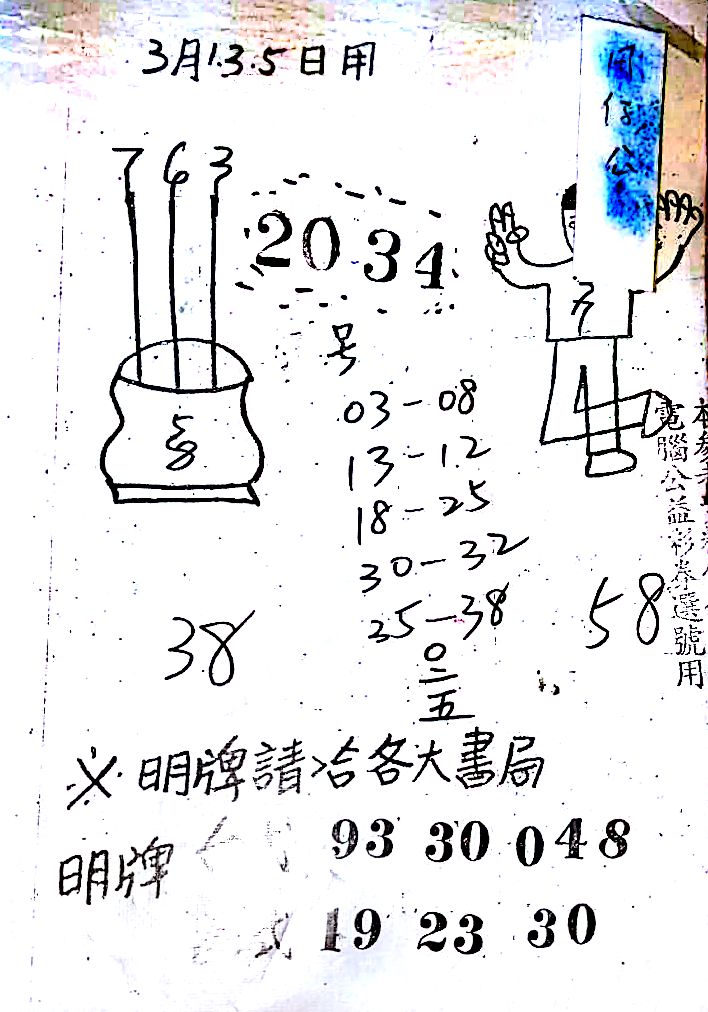 3月1.3.5日用
仔公
7 6 3
20 34
号
03-08
13-12
18-25
30-32
25-38
58
38
58
0
二
五
電腦公益彩券選號用
※明牌請洽各大書局
明牌
93 30 048
19 23 30